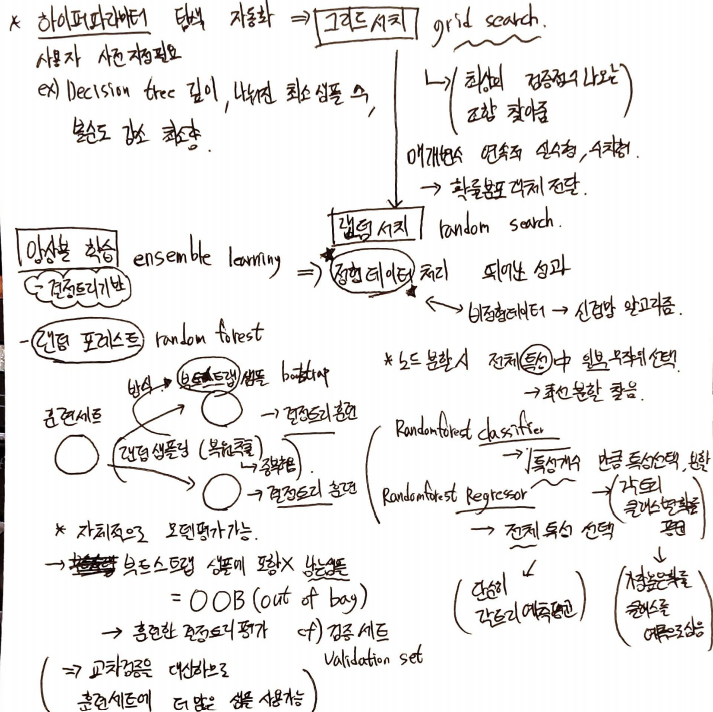 * 하이퍼파라미터 탐색 자동화 ⇒ 그리드 서치 grid search.
사용자 사전지정필요
ex) Decision tree 깊이, 나눠진 최소 샘플 수,
불순도 감소 최소량.
↳ (최상의 검증점수 나오는
조합 찾아줌)
매개변수 연속적 실수형, 수치형.
→ 확률분포 객체 전달.
랜덤 서치 random search.
앙상블 학습 ensemble learning ⇒ 정형 데이터 처리 뛰어난 성과
결정트리기반
↔ 비정형데이터 → 신경망 알고리즘.
- 랜덤 포레스트 random forest
방식 → 부트스트랩 샘플 bootstrap
훈련세트
→ 결정트리 훈련
랜덤 샘플링 (복원추출)
↳ 중복허용.
→ 결정트리 훈련
* 노드 분할시 전체 특성 中 일부 무작위 선택.
→ 최선 분할 찾음.
Randomforest classifier
→ √특성개수 만큼 특성선택, 분할
Randomforest Regressor
→ 전체 특성 선택
→ (각트리
클래스별확률
평균)
(단순히
각트리 예측평균)
(가장높은확률
클래스를
예측으로삼음)
* 자체적으로 모델평가가능.
→ 부트스트랩 샘플에 포함X 남는샘플
= OOB (out of bag)
→ 훈련한 결정트리 평가 cf) 검증 세트
validation set
(⇒ 교차검증을 대신하므로
훈련세트에 더 많은 샘플 사용가능)